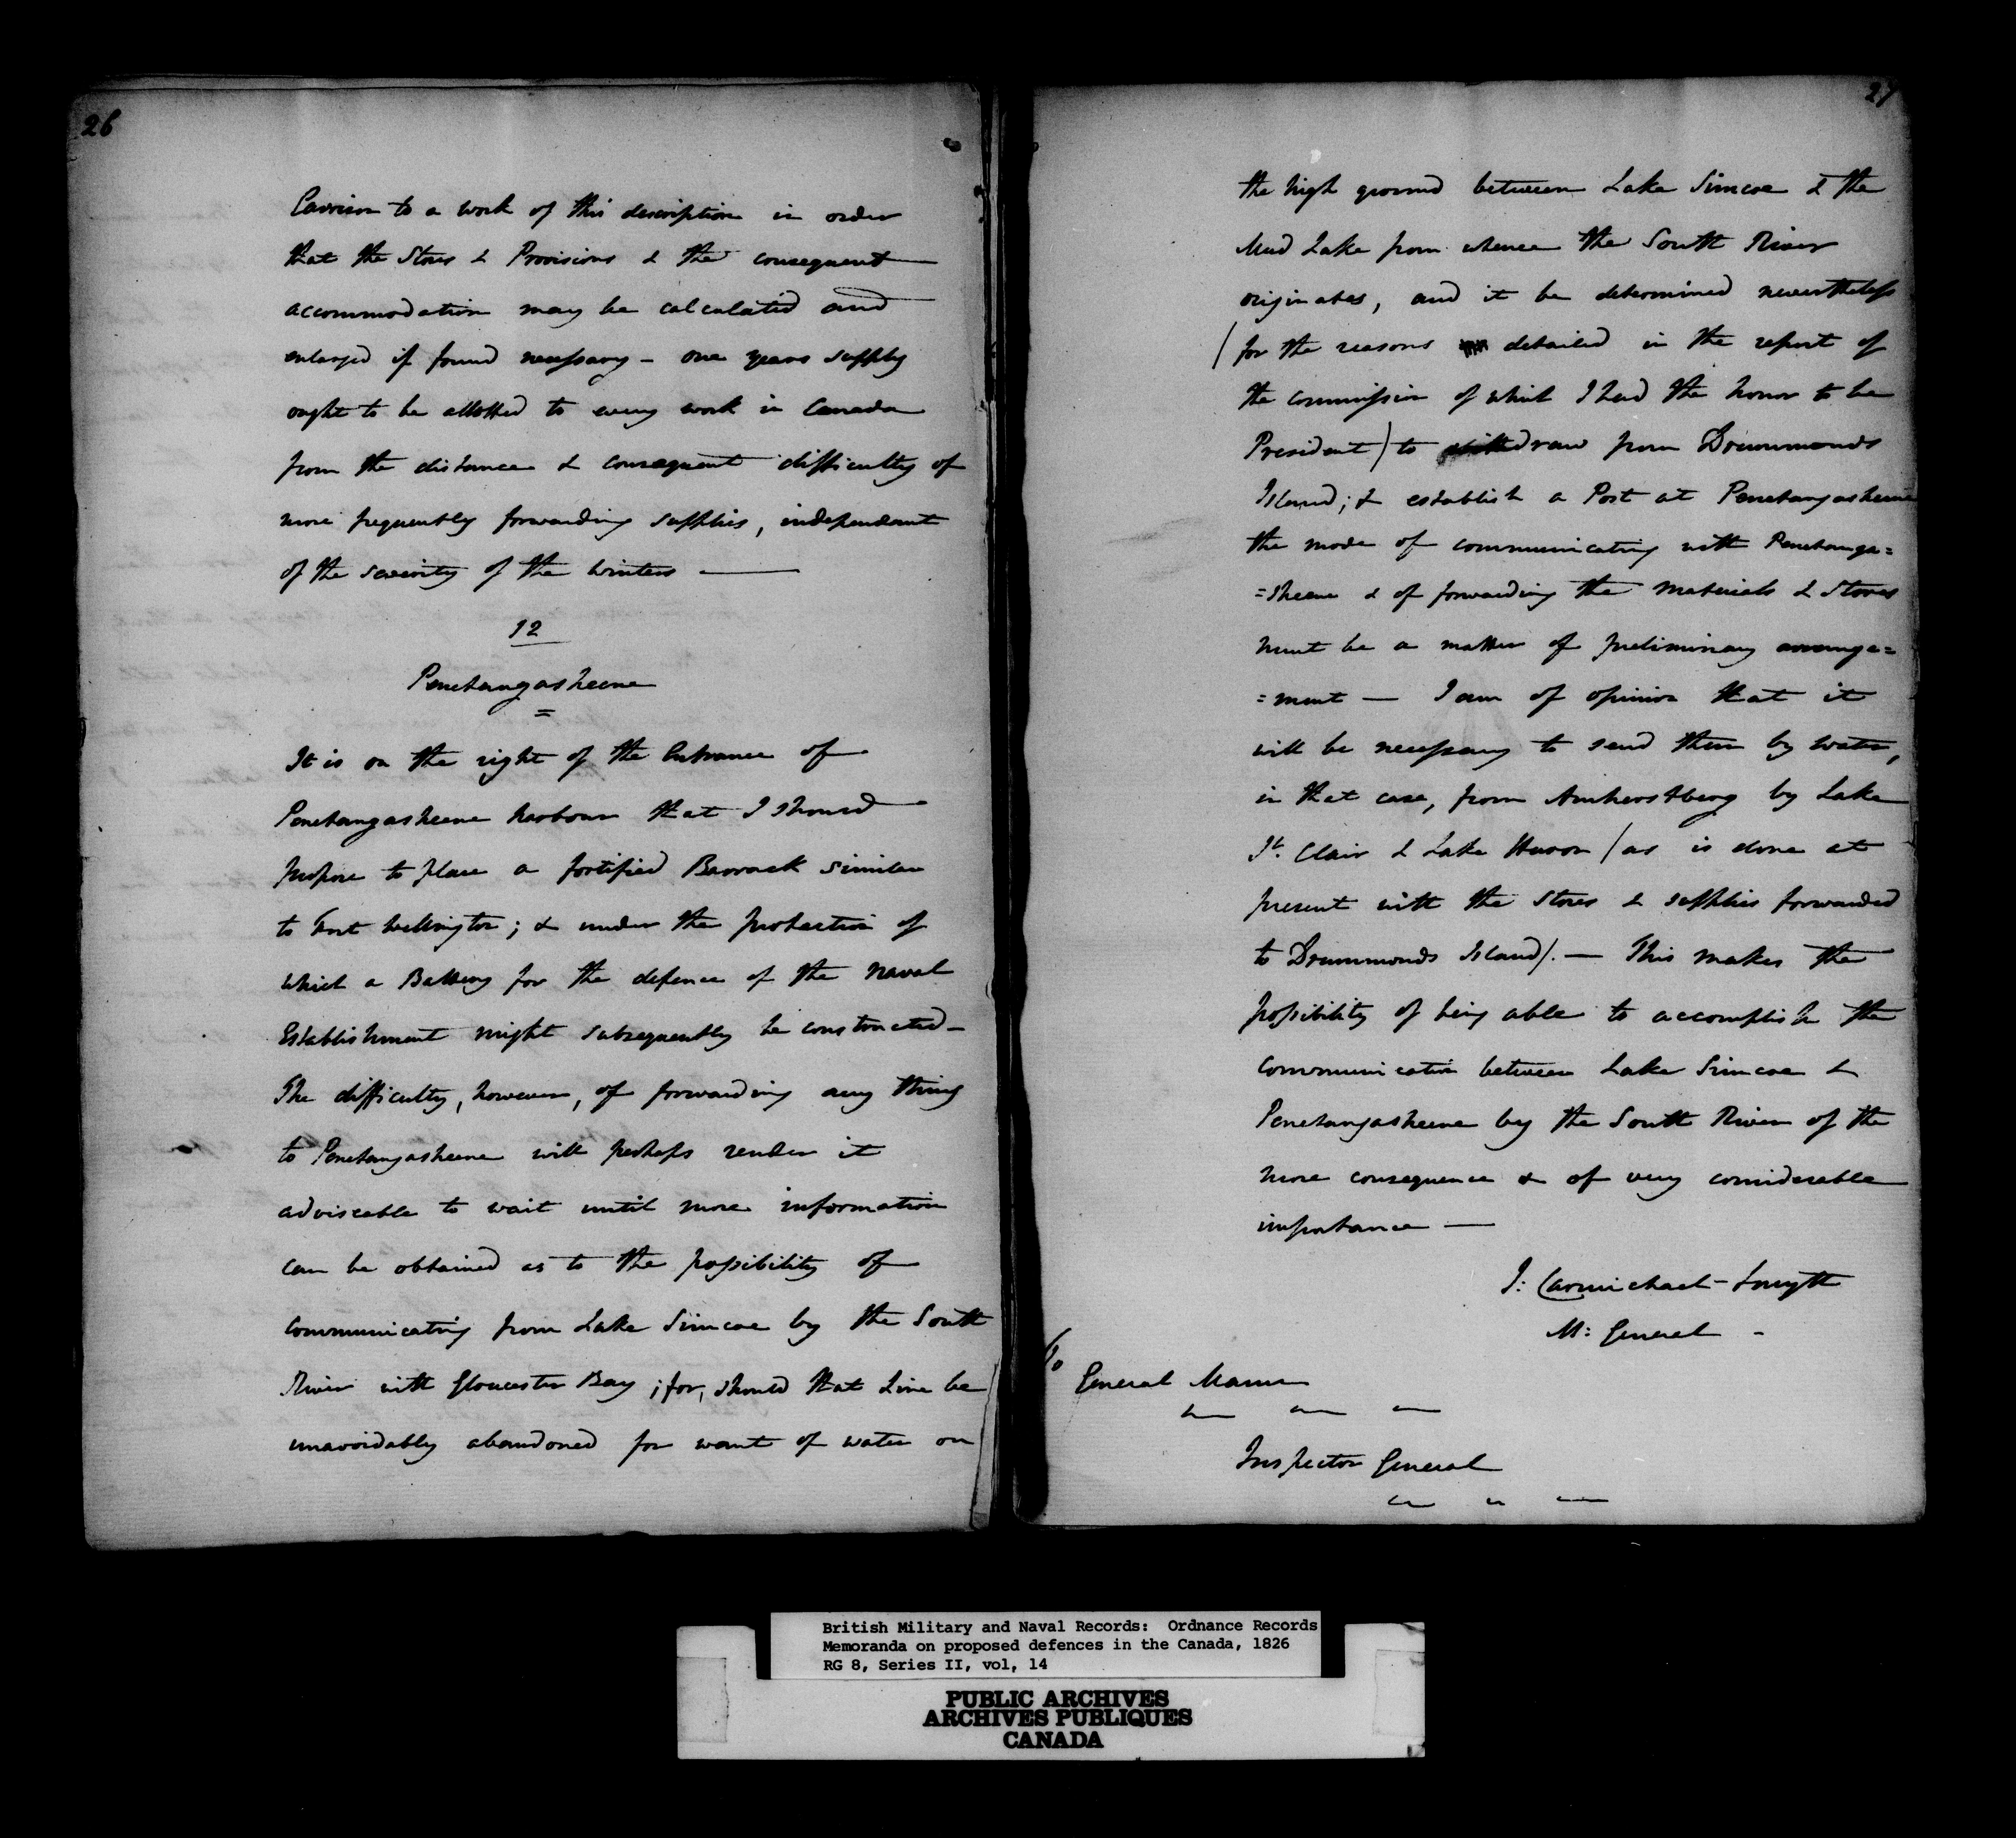 26
Garrison to a work of this description in order
that the Stores & Provisions & the consequent
accommodation may be calculated and
enlarged if found necessary – one years supply
ought to be allotted to every work in Canada
from the distance & consequent difficulty of
more frequently forwarding supplies, independant
of the severity of the winters —
12
Penetangasheene
=
It is on the right of the Entrance of
Penetangasheene harbour that I should
propose to place a fortified Barrack similar
to Fort Wellington; & under the protection of
which a Battery for the defence of the Naval
Establishment might subsequently be constructed –
The difficulty, however, of forwarding any thing
to Penetangasheene will perhaps render it
adviseable to wait until more information
can be obtained as to the possibility of
communicating from Lake Simcoe by the South
River with Gloucester Bay; for, should that Line be
unavoidably abandoned for want of water on
27
the high ground between Lake Simcoe & the
Mud Lake from whence the South River
originates, and it be determined nevertheless
/for the reasons detailed in the report of
the commission of which I had the honor to be
President/ to withdraw from Drummonds
Island; & establish a Post at Penetangasheene
the mode of communicating with Penetanga=
=sheene & of forwarding the Materials & Stores
must be a matter of preliminary arrange=
=ment — I am of opinion that it
will be necessary to send them by water,
in that case, from Amherstberg by Lake
St. Clair & Lake Huron /as is done at
present with the Stores & supplies forwarded
to Drummonds Island/. — This makes the
possibility of being able to accomplish the
communication between Lake Simcoe &
Penetangasheene by the South River of the
more consequence & of very considerable
importance —
J: Carmichael-Smyth
M: General –
To
General Mann
Inspector General
British Military and Naval Records: Ordnance Records
Memoranda on proposed defences in the Canada, 1826
RG 8, Series II, vol, 14
PUBLIC ARCHIVES
ARCHIVES PUBLIQUES
CANADA